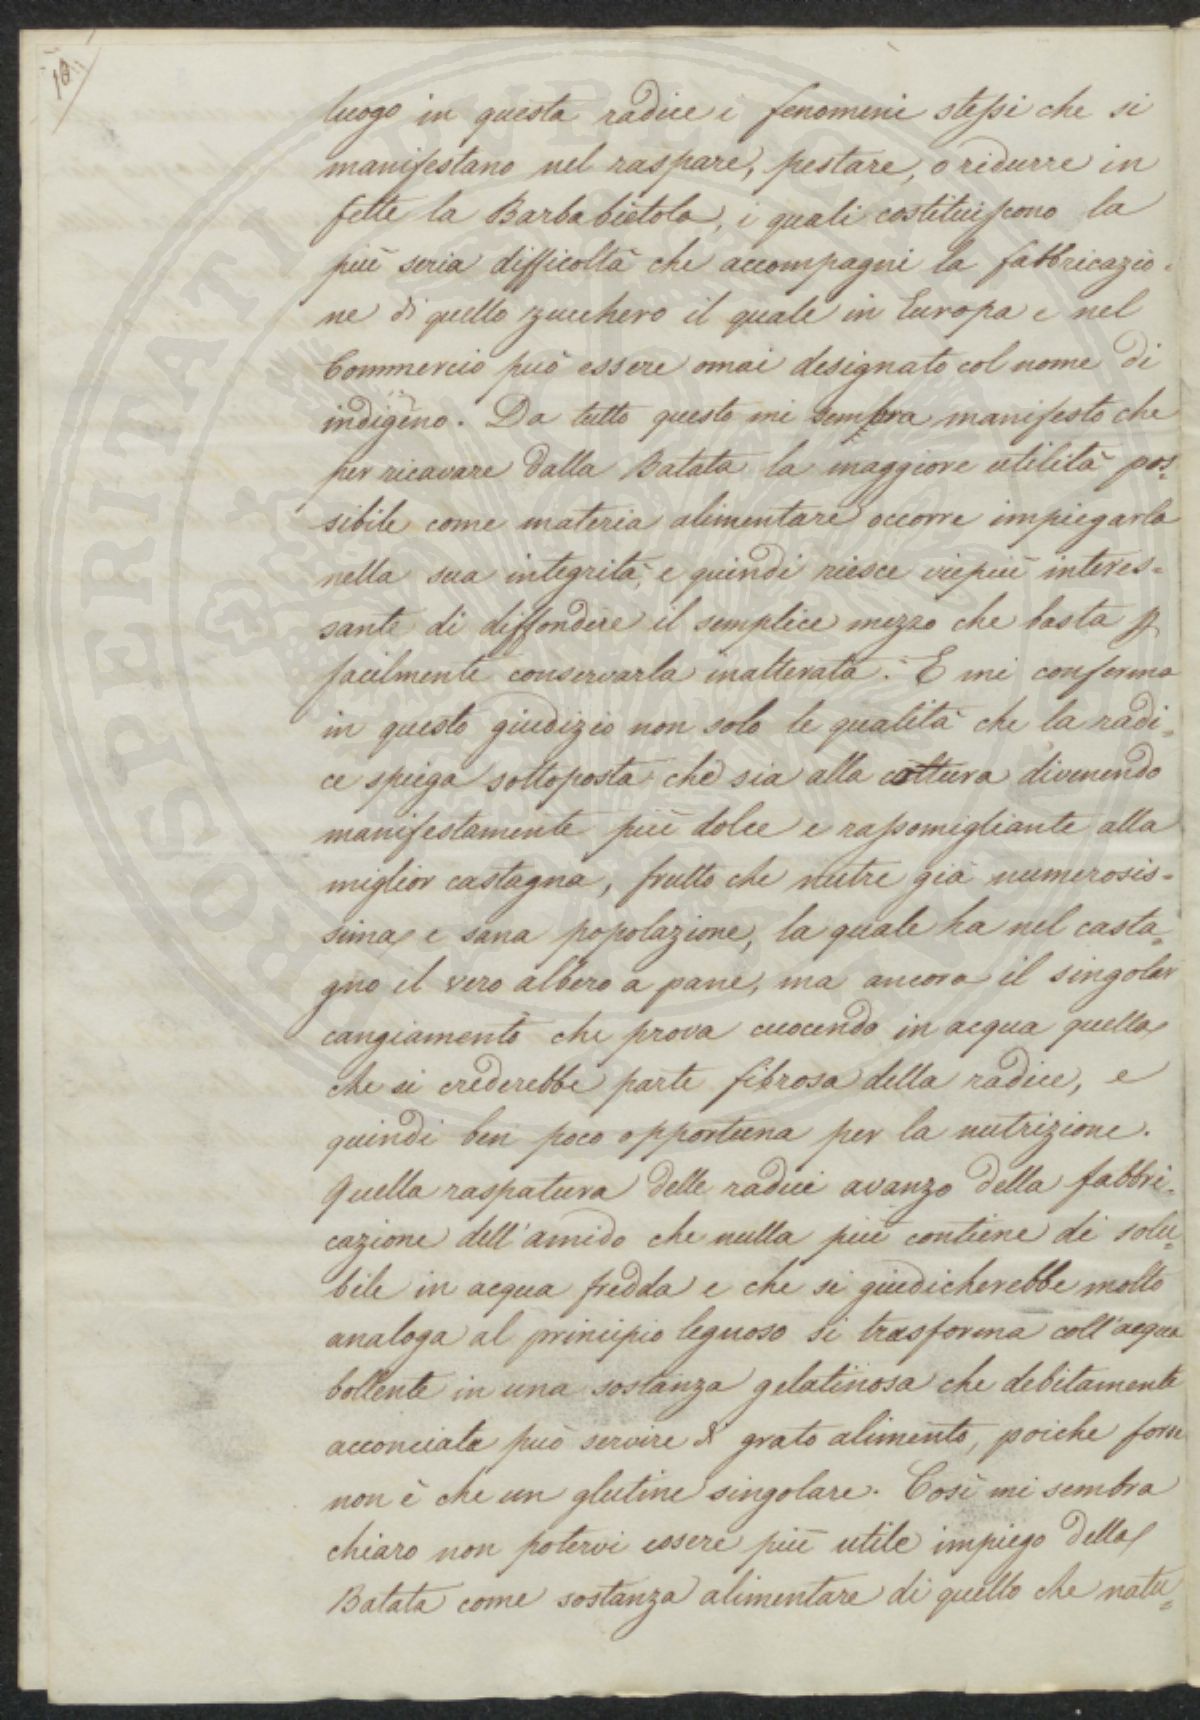 10.
luogo in questa radice i fenomeni stessi che si
manifestano nel raspare, pestare, o ridurre in
fette la Barbabietola, i quali costituiscono la
più seria difficoltà che accompagni la fabbricazio-
ne di quello zucchero il quale in Europa e nel
Commercio può essere omai designato col nome di
indigeno. Da tutto questo mi sembra manifesto che
per ricavare dalla Batata la maggiore utilità pos-
sibile come materia alimentare occorre impiegarla
nella sua integrità, e quindi riesce viepiù interes-
sante di diffondere il semplice mezzo che basta p
facilmente conservarla inalterata. E mi conferma
in questo giudizio non solo le qualità che la radi-
ce spiega sottoposta che sia alla cottura divenendo
manifestamente più dolce e rassomigliante alla
miglior castagna, frutto che nutre già numerosis-
sima e sana popolazione, la quale ha nel casta-
gno il vero albero a pane, ma ancora il singolar
cangiamento che prova cuocendo in acqua quella
che si crederebbe parte fibrosa della radice, e
quindi ben poco opportuna per la nutrizione.
Quella raspatura delle radici avanzo della fabbri-
cazione dell'amido che nulla più contiene di solu-
bile in acqua fredda e che si giudicherebbe molto
analoga al principio legnoso si trasforma coll'acqua
bollente in una sostanza gelatinosa che debitamente
acconciata può servire di grato alimento, poiche forse
non è che un glutine singolare. Così mi sembra
chiaro non potervi essere più utile impiego della
Batata come sostanza alimentare di quello che natu-
PROSPERITATI